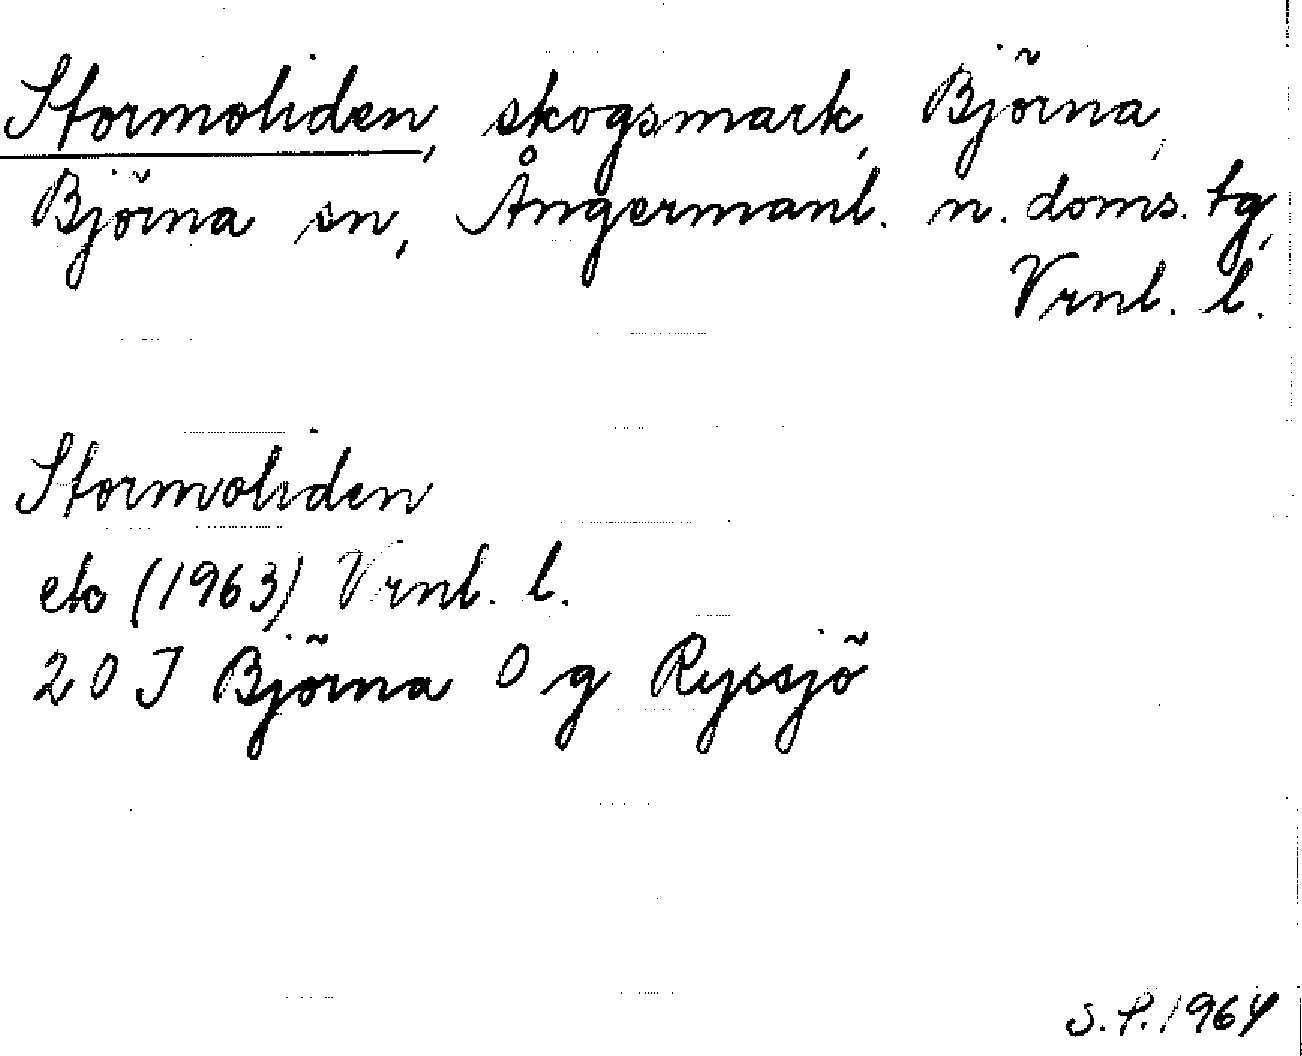 Stormoliden, skogsmark, Björna,
Björna sn, Ångermanl. n. doms. tg,
Vrnl. l.
Stormoliden
ek (1963) Vrnl. l.
20 J Björna 0 g Ryssjö
S.P. 1964